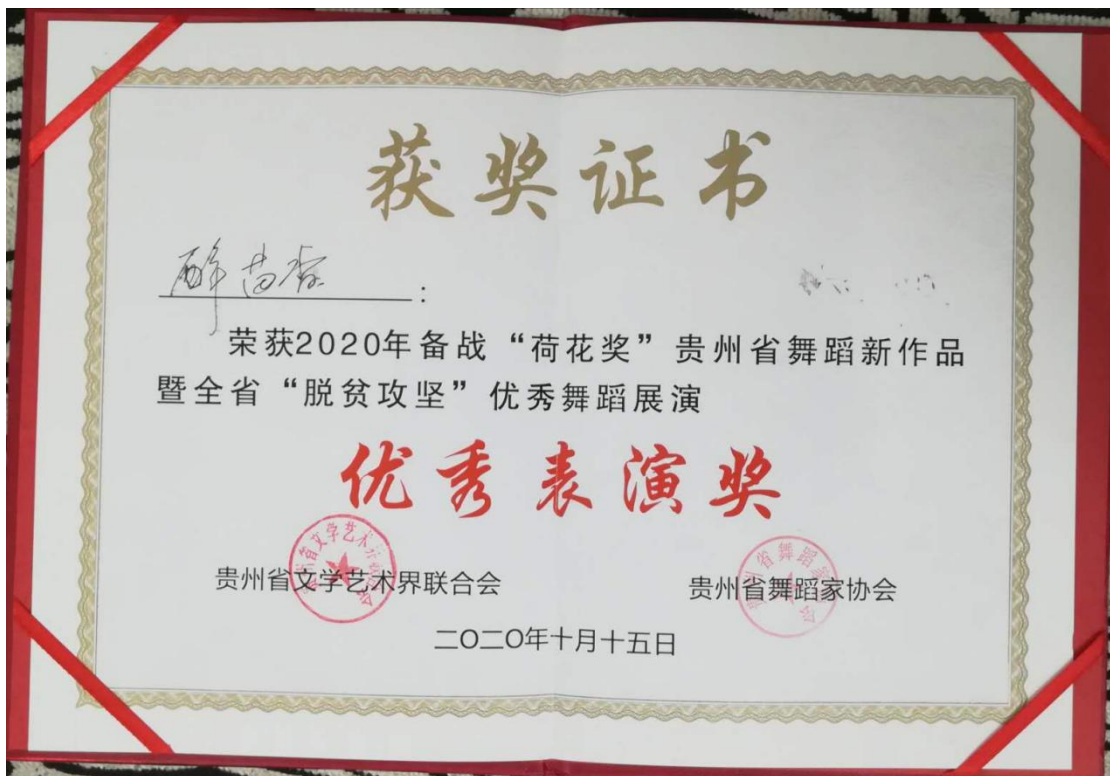 获奖证书
醉苗乡:
荣获2020年备战“荷花奖”贵州省舞蹈新作品
暨全省“脱贫攻坚”优秀舞蹈展演
优秀表演奖
贵州省文学艺术界联合会 贵州省舞蹈家协会
二〇二〇年十月十五日